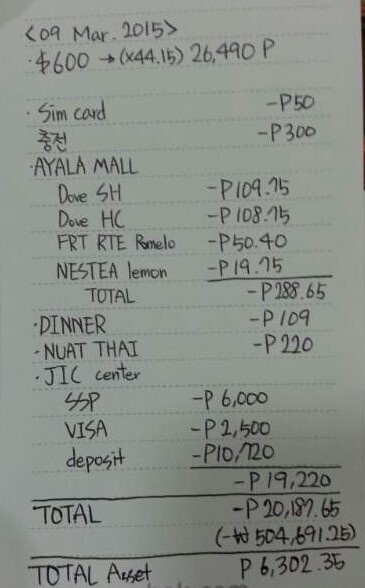 <09 Mar. 2015>
· $600 → (x44.15) 26,490 P
· Sim card -P50
충전 -P300
·AYALA MALL
Dove SH -P109.75
Dove HC -P108.75
FRT RTE Pomelo -P50.40
NESTEA lemon -P19.75
TOTAL -P288.65
·DINNER -P109
·NUAT THAI -P220
·JIC center
SSP -P 6,000
VISA -P 2,500
deposit -P10,720
-P 19,220
TOTAL -P 20,187.65
(-₩ 504,691.25)
TOTAL Asset P 6,302.35